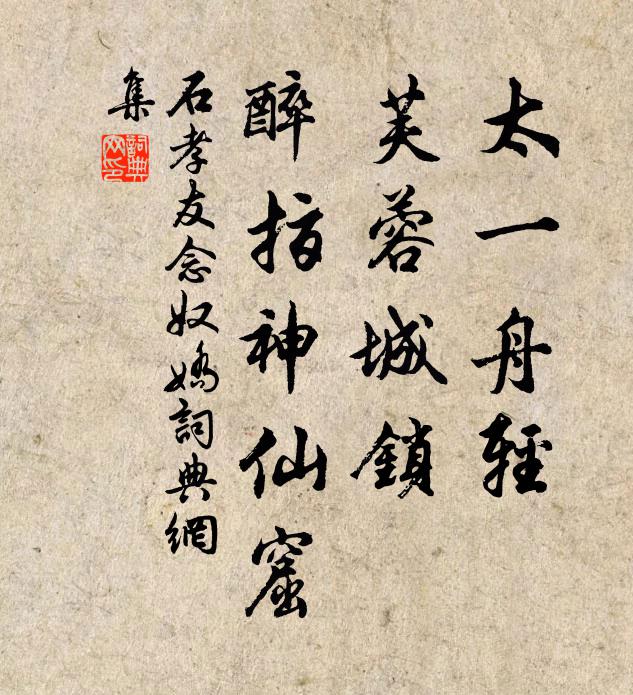 太一舟輕
芙蓉城鎖
醉指神仙窟
石孝友念奴嬌詞典網
集
詞典
网印